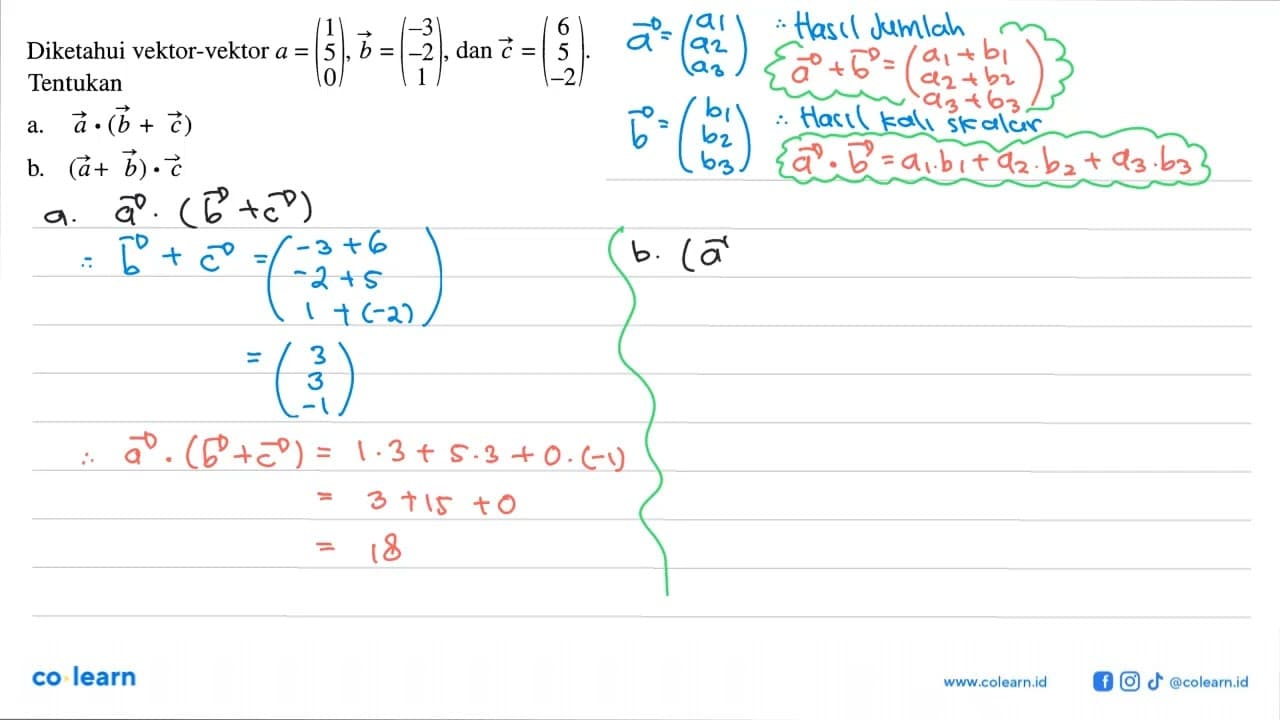 Diketahui vektor-vektor a = (1 5 0), b⃗ = (–3 –2 1), dan c⃗ = (6 5 –2).
Tentukan
a. a⃗ • (b⃗ + c⃗)
b. (a⃗ + b⃗) • c⃗
a⃗ = (a1 a2 a3)
b⃗ = (b1 b2 b3)
∴ Hasil Jumlah
a⃗ + b⃗ = (a1 + b1 a2 + b2 a3 + b3)
∴ Hasil kali skalar
a⃗ · b⃗ = a1.b1 + a2.b2 + a3.b3
a. a⃗ · (b⃗ + c⃗)
∴ b⃗ + c⃗ = (-3 + 6 -2 + 5 1 + (-2))
= (3 3 -1)
∴ a⃗ · (b⃗ + c⃗) = 1.3 + 5.3 + 0.(-1)
= 3 + 15 + 0
= 18
b. (a⃗
co·learn
www.colearn.id
@colearn.id